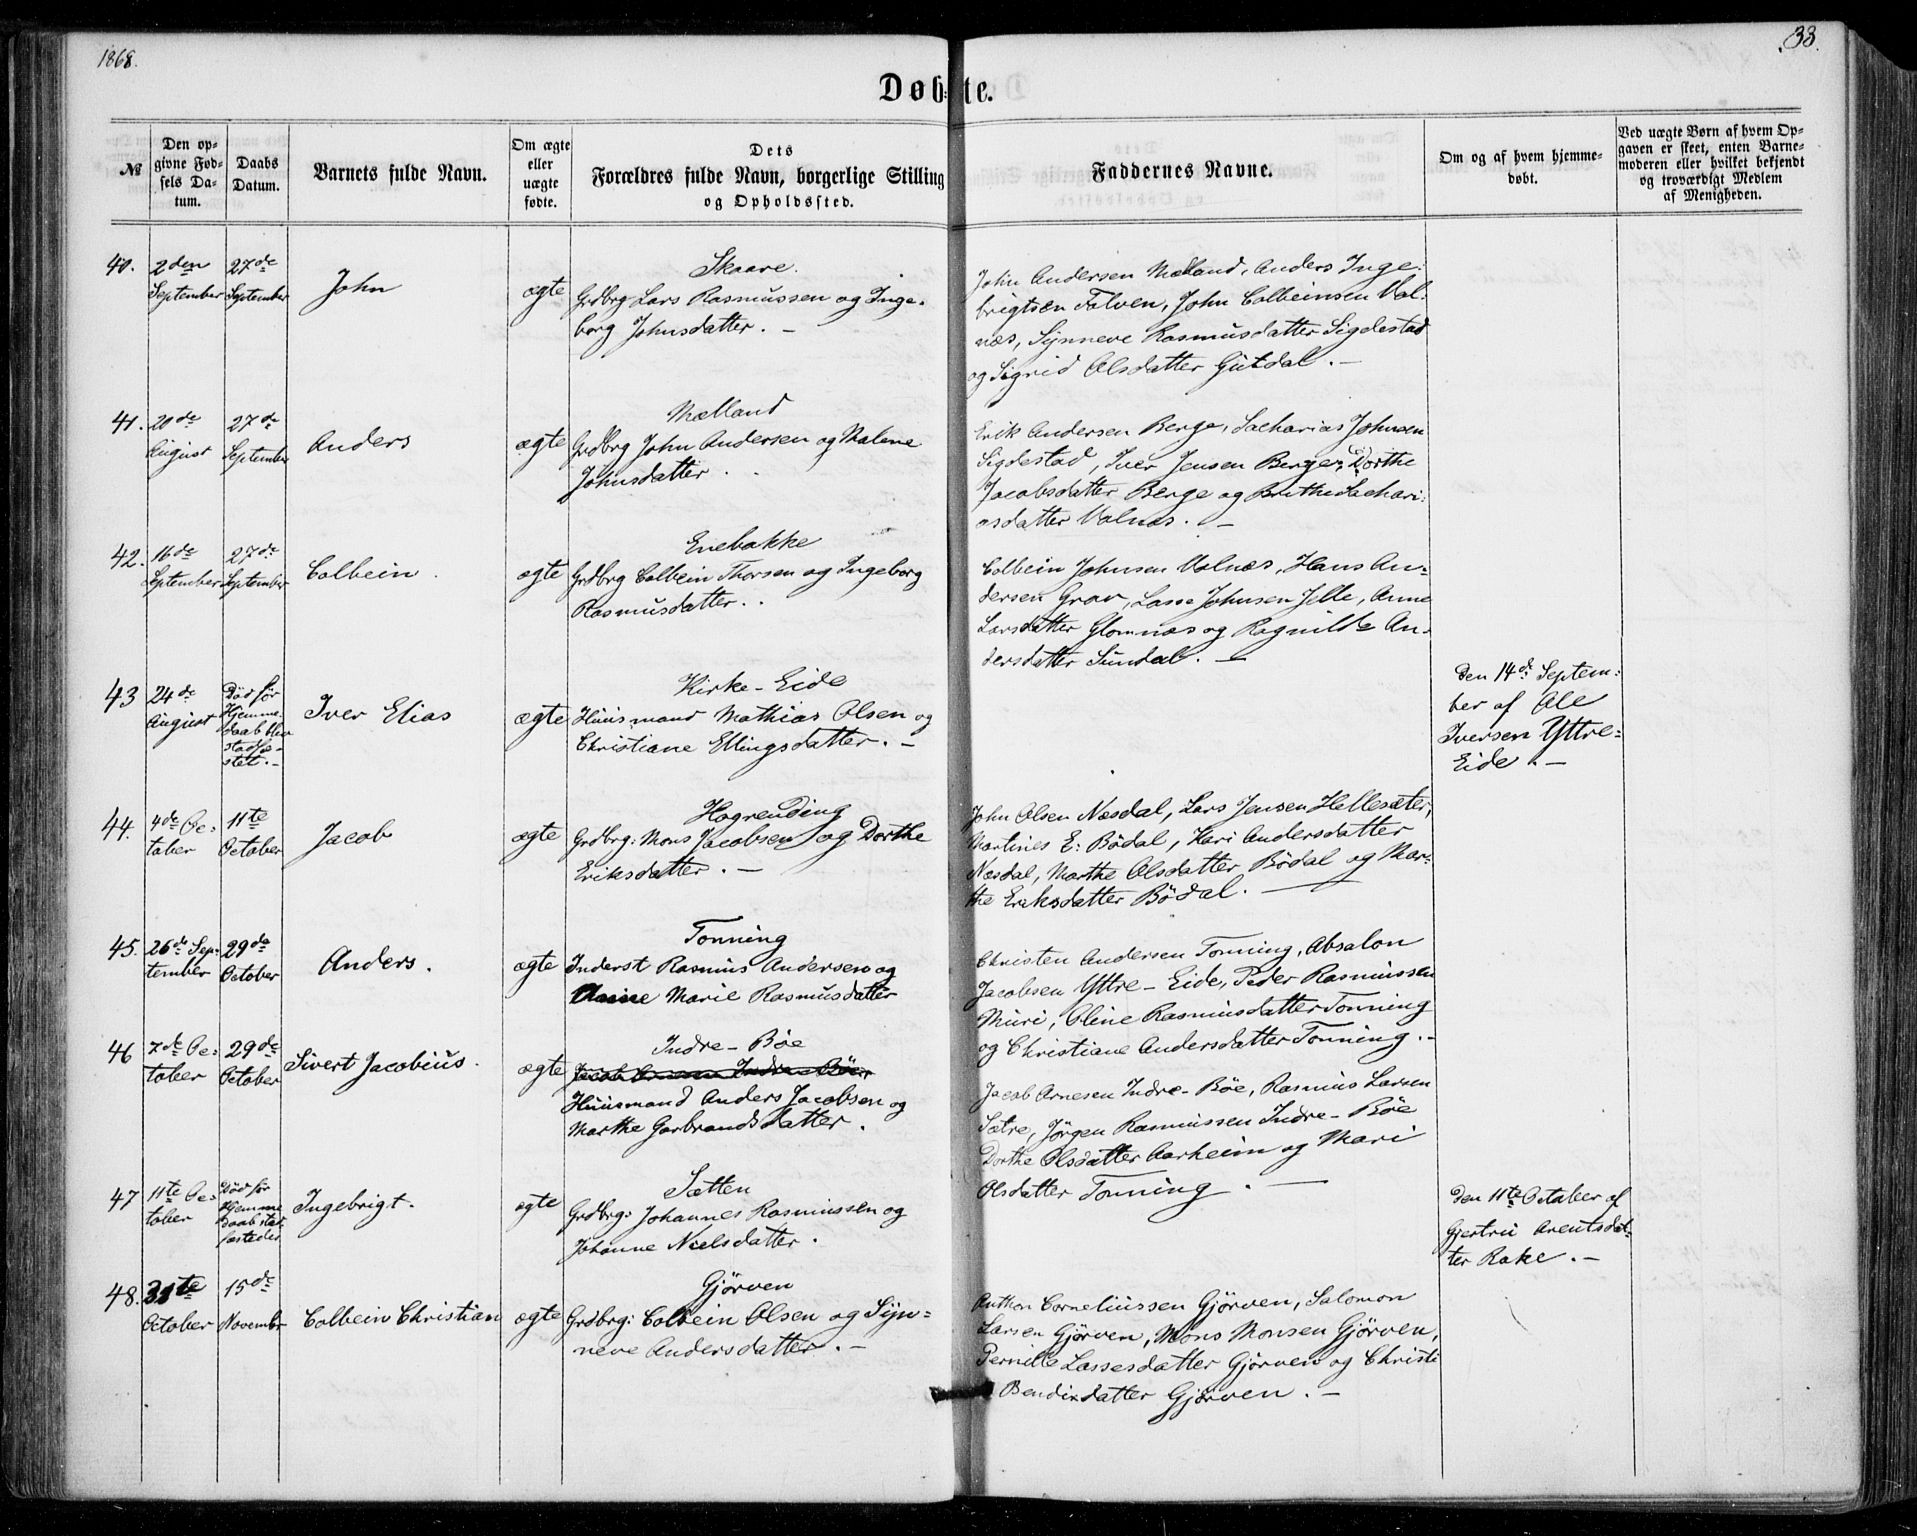 1868.
33.
Døbte.
№
Den opgivne Fødsels Datum.
Daabs Datum.
Barnets fulde Navn.
Om ægte eller uægte fødte.
Dets Forældres fulde Navn, borgerlige Stilling og Opholdssted.
Faddernes Navne.
Om og af hvem hjemmedøbt.
Ved uægte Børn af hvem Opgaven er skeet, enten Barnemoderen eller hvilket bekjendt og troværdigt Medlem af Menigheden.
40. 2den September
27de September
John
ægte
Skaare.
Grdbrg Lars Rasmussen og Inge-
borg Johnsdatter. -
John Andersen Mælland, Anders Inge-
brigtsen Tolven, John Colbeinsen Val-
næs, Synneve Rasmusdatter Sigdestad
og Sigrid Olsdatter Gutdal. -
41. 20de August
27de September
Anders
ægte
Mælland
Grdbrg John Andersen og Malene
Johnsdatter.
Erik Andersen Berge, Sacharias Johnsen
Sigdestad, Iver Jensen Berge, Dorthe
Jacobsdatter Berge og Brithe Sachari-
asdatter Valnæs. -
42. 16de September
27de September
Colbein.
ægte
Enebakke
Grdbrg Colbein Thorsen og Ingeborg
Rasmusdatter.
Colbein Johnsen Valnæs, Hans An-
dersen Grov, Lasse Johnsen Jelle, Anne
Larsdatter Glomnæs og Ragnilde An-
dersdatter Sundal. -
43 24de August
Død før
Hjemme-
daab blev
stadfæ-
stet. -
Iver Elias
ægte
Kirke-Eide
Huusmand Mathias Olsen og
Christiane Ellingsdatter. -
Den 14de Septem-
ber af Ole
Iversen Yttre-
Eide. -
44. 4de Oc-
tober
11te October
Jacob
ægte
Hogrending
Grdbrg: Mons Jacobsen og Dorthe
Eriksdatter. -
John Olsen Næsdal, Lars Jensen Hellesæter,
Martines E: Bödal, Kari Andersdatter
Næsdal, Marthe Olsdatter Bödal og Mar-
the Eriksdatter Bödal. -
45. 26de Sep-
tember
29de October
Anders.
ægte
Tonning
Inderst Rasmus Andersen og
Marie Rasmusdatter
Christen Andersen Tonning, Absalon
Jacobsen Yttre-Eide, Peder Rasmussen
Muri, Oline Rasmusdatter Tonning
og Christiane Andersdatter Tonning. -
46 7de Oc-
tober
29de October
Sivert Jacobius.
ægte
Indre-Bøe
Huusmand Anders Jacobsen og
Marthe Garbrandsdatter.
Jacob Arnesen Indre-Bøe, Rasmus Larsen
Sætre, Jörgen Rasmussen Indre-Bøe
Dorthe Olsdatter Aarheim og Mari
Olsdatter Tonning. -
47 11te Oc-
tober
Død før
Hjemme
daab stad
fæstedes
Ingebrigt.
ægte
Sætten
Grdbrg: Johannes Rasmussen og
Johanne Nielsdatter.
Den 11te October af
Gjertru Arentsdat-
ter Rake. -
48. 31te
October
15de
Novembr
Colbein Christian
ægte
Gjörven
Grdbrg: Colbein Olsen og Syn-
neve Andersdatter. -
Anthon Corneliussen Gjörven, Salomon
Larsen Gjörven, Mons Monsen Gjörven,
Pernille Lassesdatter Gjörven og Christi
Bendixdatter Gjörven. -